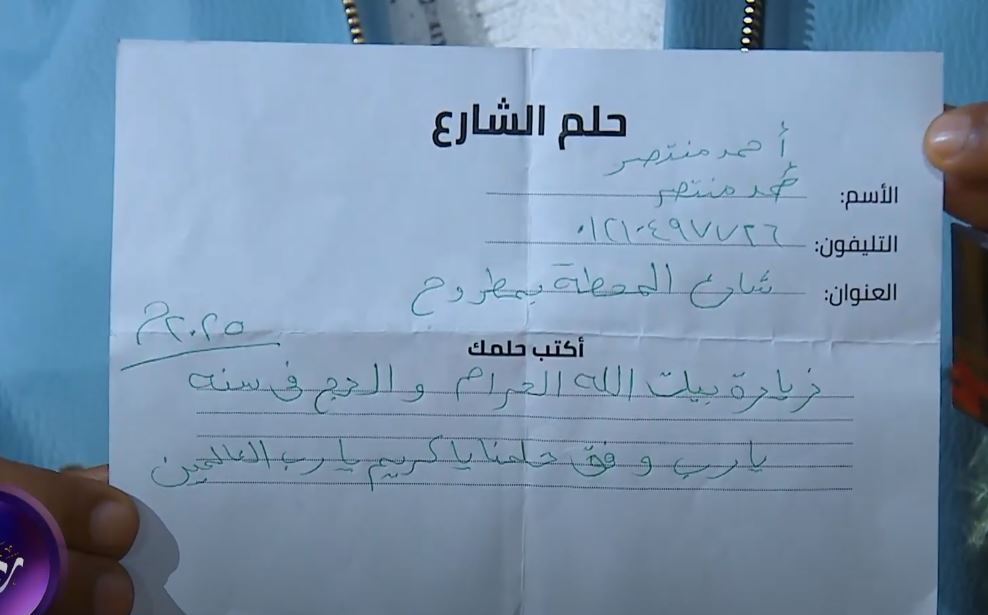 حلم الشارع
أحمد منتصر
الأسم: محمد منتصر
التليفون: ٠١٢١٠٤٩٧٧٢٦
العنوان: شارع المحطة بمطروح
أكتب حلمك
زيارة بيت الله الحرام والحج فى سنه ٢٠٢٥م
يارب وفق حلمنا يا كريم يارب العالمين